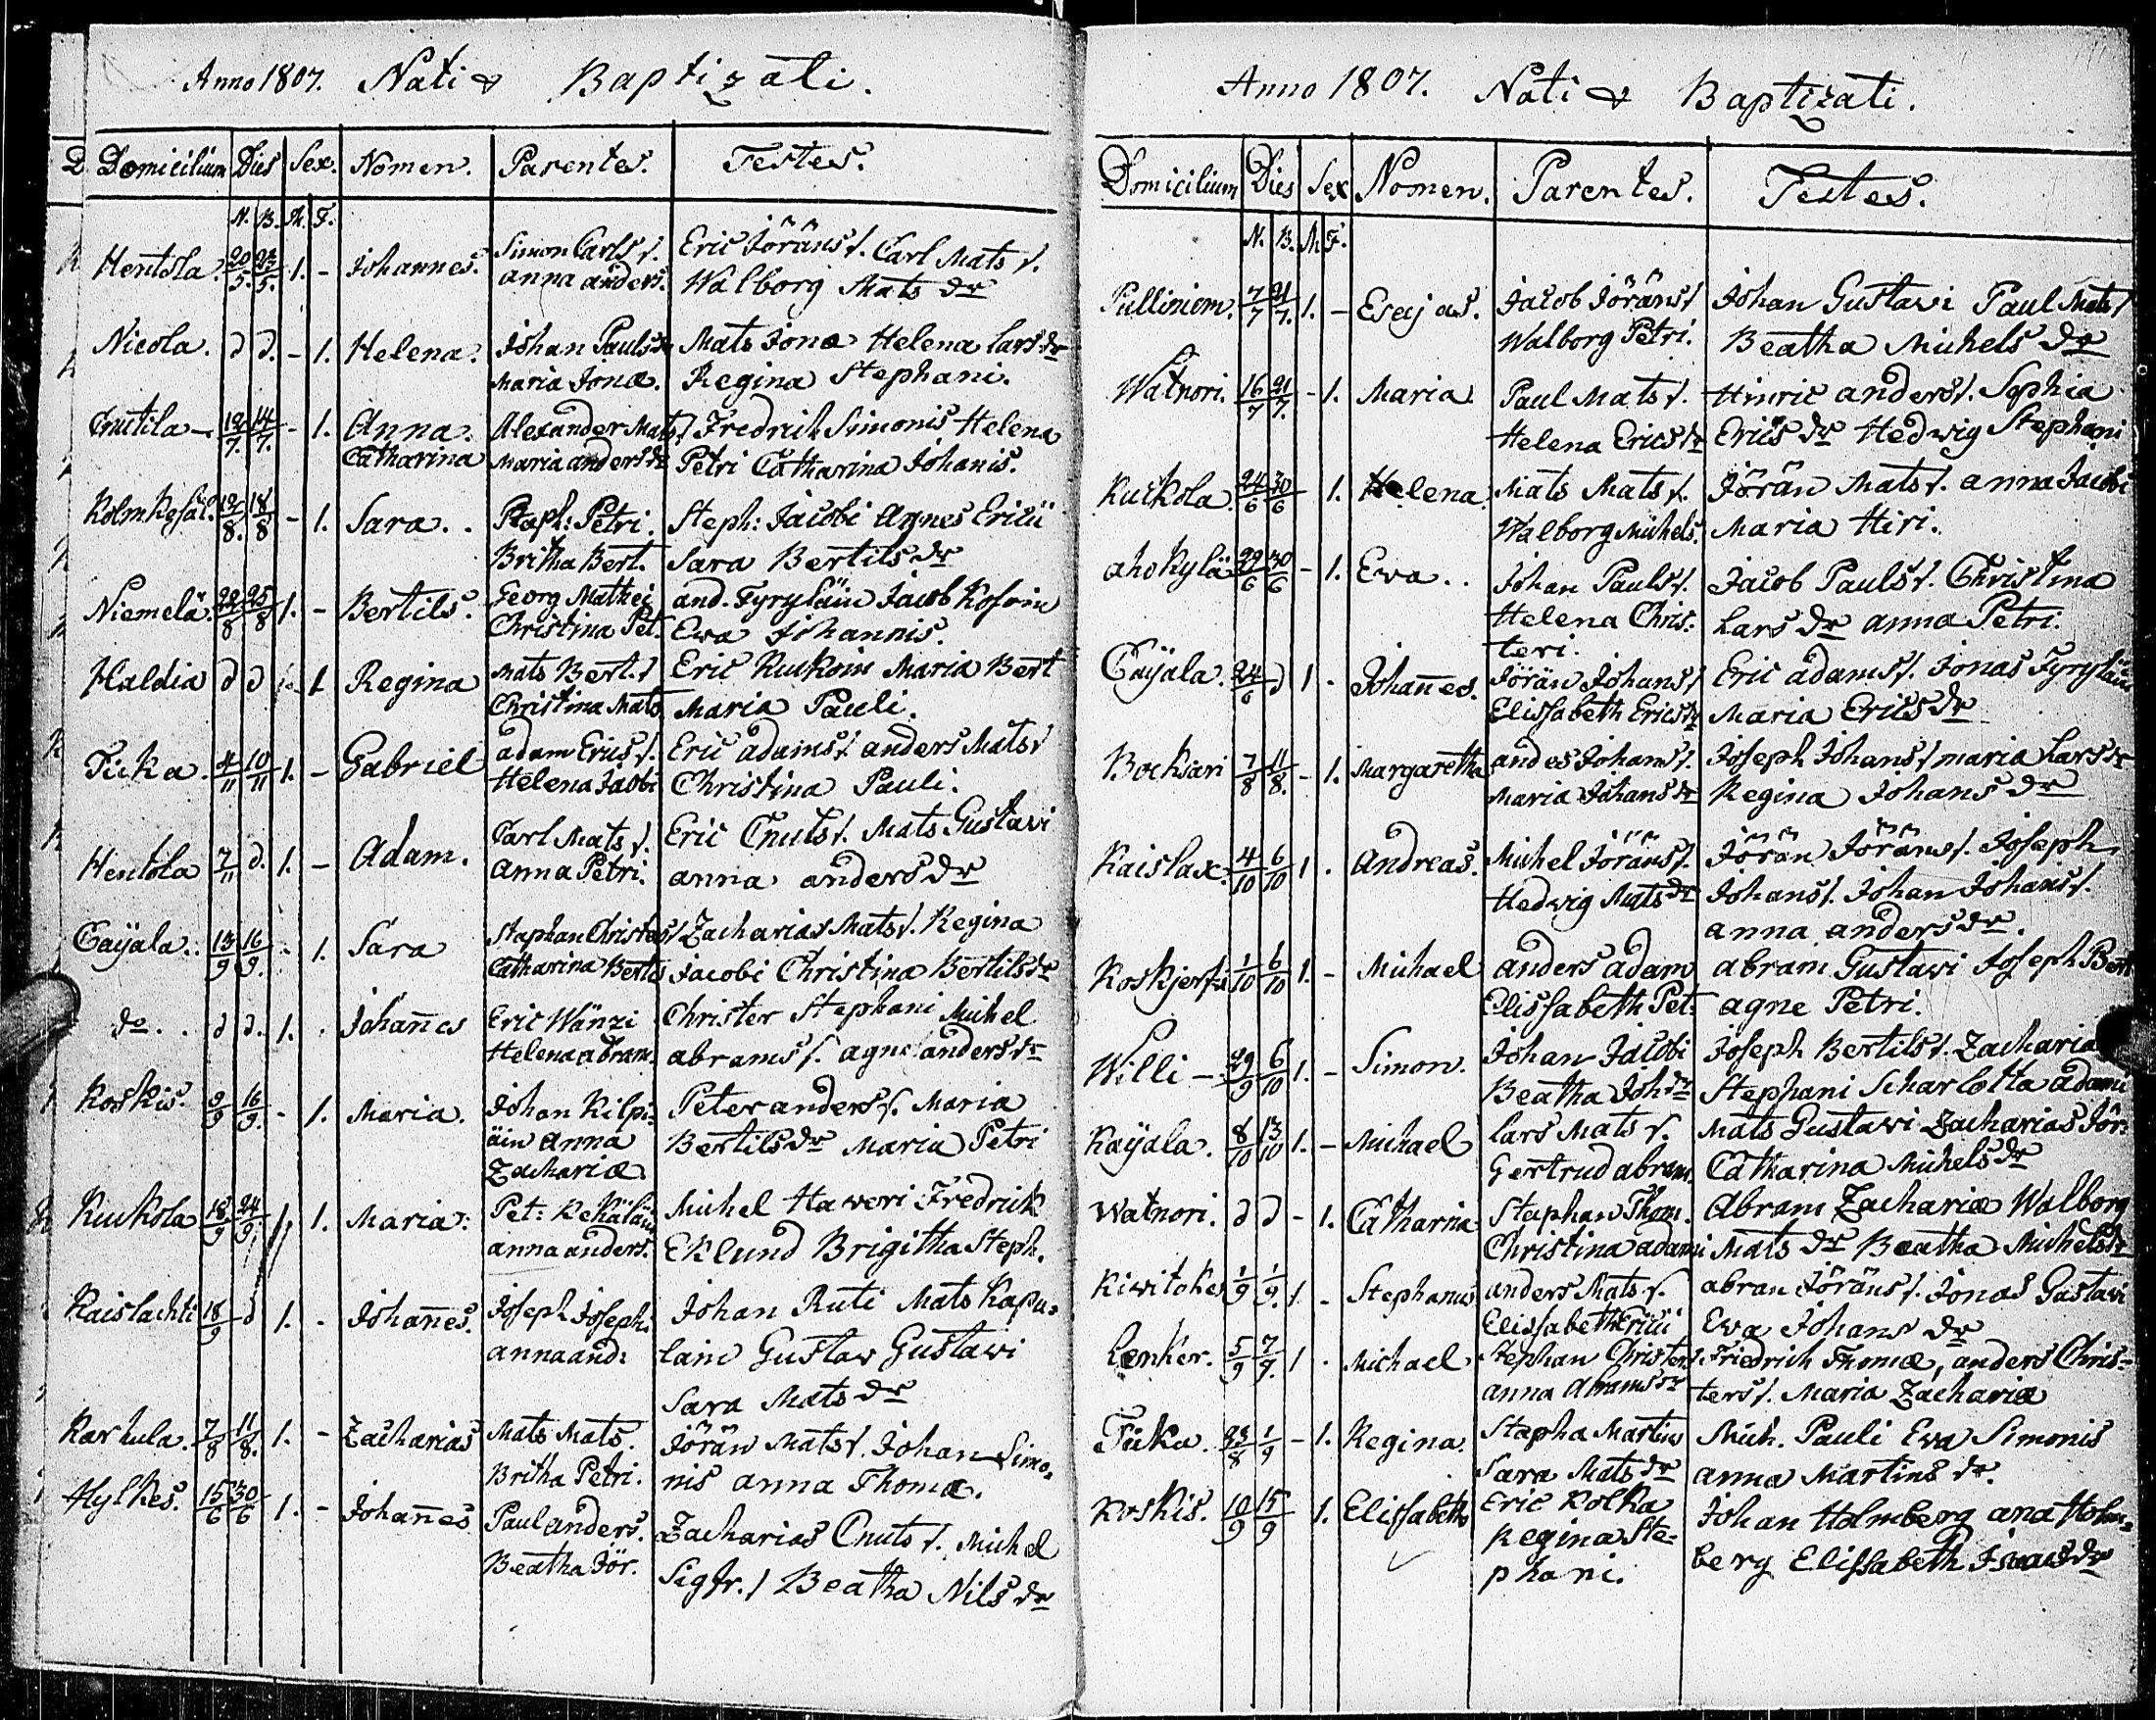 Anno 1807. Nati & Baptizati.
Domicilium Dies Sex. Nomen. Parentes. Testes.
N. B. M. F.
Hentola. 20/5. 23/5. 1. - Johannes. Simon Carls s. Eric Jöräns s. Carl Mats s.
anna anders. Walborg Mats dr
Nicola. d d. - 1. Helena. Johan Pauls Mats Jonæ Helena Lars dr
Maria Jonæ. Regina Stephani.
Cnutila - 12/7. 14/7. - 1. Anna. Alexander Mats s Fredrich Simonis Helena
Catharina Maria anders dr Petri Catharina Johanis.
Kolmkesäl. 12/8. 18/8 - 1. Sara. . Staph: Petri. Steph: Jacobi Agnes Ericii
Britha Bert. Sara Bertils dr
Niemelä. 22/8 25/8 1. - Bertils. Georg Mathei and. Tyryläin Jacob Kosoin
Christina Pet. Ewa Johannis.
Haldia d d 1 Regina Mats Bert. s Eric Kuckoin Maria Bert
Christina Mats Maria Pauli.
Ticka. 4/11 10/11 1. - Gabriel adam Erics s. Eric adams s anders Mats s
Helena Jacobi Christina Pauli.
Hentola 7/11 d. 1. - Adam. Carl Mats s. Eric Cnuts s. Mats Gustavi
Anna Petri. anna anders dr
Cayala. 13/9 16/9. - 1. Sara Staphan Christers s Zacharias Mats s. Regina
Catharina Bertils Jacobi Christina Bertils dr
do. . d d. 1. . Johanes Eric Wänzi Christer Stephani Michel
Helena abram. abrams s. agne anders dr
Koskis. 9/9 16/9. - 1. Maria. Johan Kilpi- Peter anders s. Maria
äin Anna Bertils dr Maria Petri
Zachariæ
Kuckola 18/9 24/9. 1. Maria: Pet: Kekäläin Michel Haweri Fredrick
anna anders. Eklund Brigitha Steph.
Kaislachti 18/9 d 1. . Johanes. Joseph Joseph: Johan Ruti Mats Kapu-
anna and: lain Gustav Gustawi
Sara Mats dr
Karhula. 7/8 11/8. 1. - Zacharias Mats Mats. Jörän Mats s. Johan Simo-
Britha Petri. nis anna Thomæ.
Hylkes. 15/6 30/6 1. - Johanes Paul anders. Zacharias Cnuts s. Michel
Beatha Jör. Sigfr. s Beatha Nils dr
Anno 1807. Nati & Baptizati.
Domicilium Dies Sex Nomen. Parentes. Testes.
N. B. M F.
Pulliniem. 7/7 21/7. 1. - Esajas. Jacob Jöräns s Johan Gustavi Paul Mats s
Walborg Petri. Beatha Michels dr
Watnori. 16/7 21/7. - 1. Maria Paul Mats s. Hinric anders s. Sophia
Helena Erics dr Erics dr Hedwig Stephani
Kuckola 24/6 30/6 1. Helena Mats Mats s. Jörän Mats s. anna Jacobi
Walborg Michels. Maria Hiri.
ahokylä 29/6 30/6 - 1. Ewa. . Johan Pauls s. Jacob Pauls s. Christina
Helena Chris- Lars dr anna Petri.
teri.
Cayala. 24/6 d 1 - Johanes. Jörän Johans s Eric adams s. Jonas Tyryläin
Elissabeth Erics dr Maria Erics dr
Bocksari 7/8 11/8. - 1. Margaretha andes Johans s. Joseph Johans s maria Lars dr
Maria Johans dr Regina Johans dr
Kaislax. 4/10 6/10 1 . Andreas. Michel Jöräns s. Jörän Jöräns s. Joseph
Hedwig Mats dr Johans s. Johan Johans s.
anna anders dr.
Koskjerfwi 1/10 6/10 1. - Michael anders adam abram Gustawi Joseph Bert
Elissabeth Pet. agne Petri.
Willi - 29/9 6/10 1. - Simon. Johan Jacobi Joseph Bertils s. Zacharia
Beatha Joh dr Stephani Scharlotta adami
Kayala. 8/10 13/10 1. - Michael Lars Mats s. Mats Gustawi Zacharias Jör:
Gertrud abram. Catharina Michels dr
Watnori. d d - 1. Catharina Staphan Thom. Abram Zachariæ Walborg
Christina adami Mats dr Beatha Michels dr
Kiwitokes 1/9 1/9. 1 - Stephanus anders Mats s. abran Jöräns s. Jonas Gustavi
Elissabeth Ericii Ewa Johans dr
Lenker. 5/9 7/9. 1 . Michael Stephan Christers s Friedrich Thomæ, anders Chris-
anna Abrams dr ters s. Maria Zachariæ
Ticka. 23/8 1/9 - 1. Regina. Stapha Martins Mich. Pauli Ewa Simonis
Sara Mats dr anna Martins dr.
Koskis. 10/9 15/9 1. Elissabetha Eric Kolka Johan Holmberg ana Holm-
Regina Ste- berg Elissabeth Isacs dr
phani.